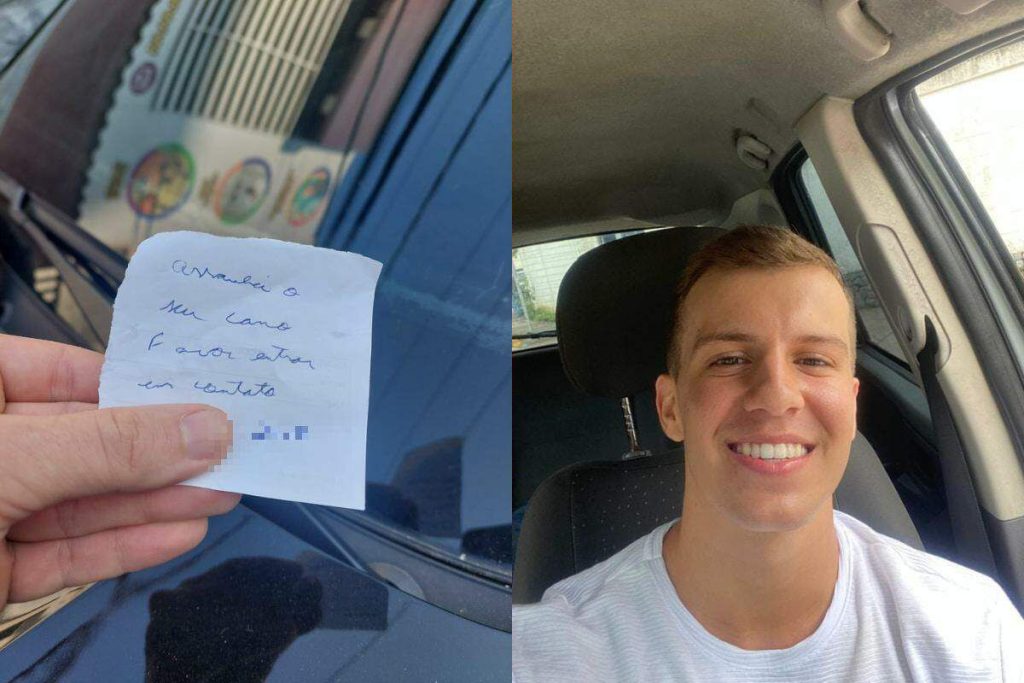 arranhei o
seu carro
Favor entrar
em contato